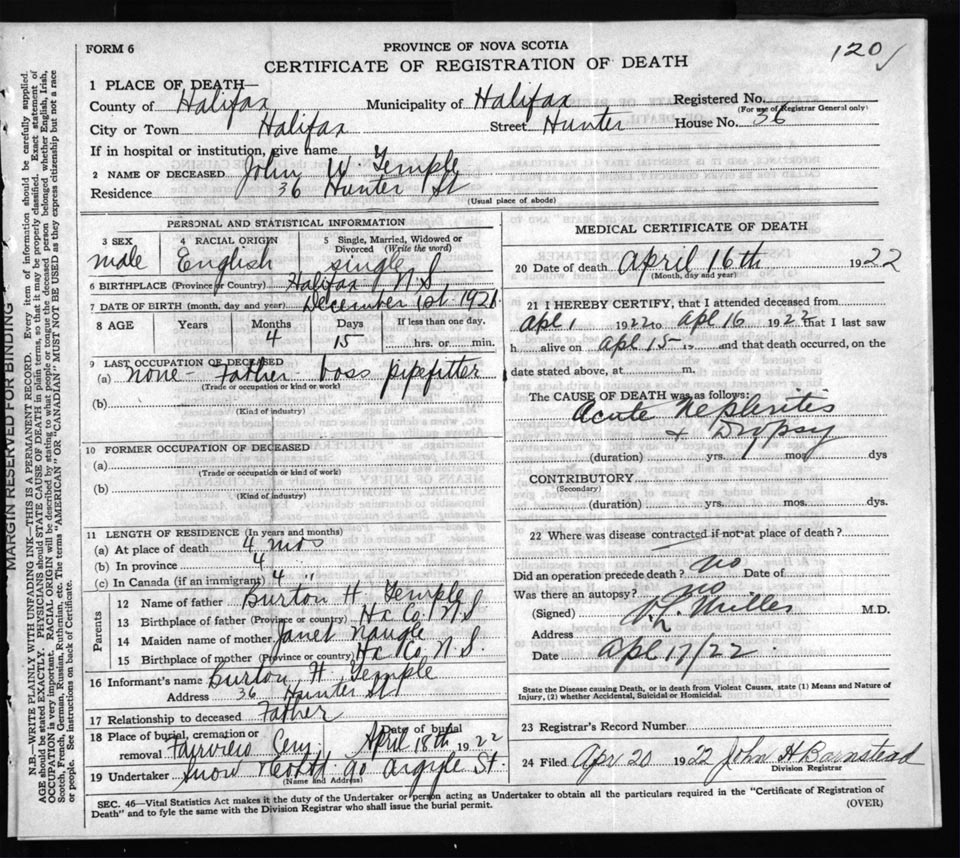 FORM 6
PROVINCE OF NOVA SCOTIA
120
CERTIFICATE OF REGISTRATION OF DEATH
1 PLACE OF DEATH—
County of Halifax Municipality of Halifax Registered No.
(For use of Registrar General only)
City or Town Halifax Street Hunter House No. 36
If in hospital or institution, give name
2 NAME OF DECEASED John W Temple
Residence 36 Hunter St
(Usual place of abode)
PERSONAL AND STATISTICAL INFORMATION
3 SEX 4 RACIAL ORIGIN 5 Single, Married, Widowed or Divorced (Write the word)
male English single
6 BIRTHPLACE (Province or Country) Halifax N S
7 DATE OF BIRTH (month, day and year) December 1st 1921
8 AGE Years Months Days If less than one day,
4 15 hrs. or min.
9 LAST OCCUPATION OF DECEASED
(a) none - Father - boss pipefitter
(Trade or occupation or kind of work)
(b)
(Kind of industry)
10 FORMER OCCUPATION OF DECEASED
(a)
(Trade or occupation or kind of work)
(b)
(Kind of industry)
11 LENGTH OF RESIDENCE (In years and months)
(a) At place of death 4 mos
(b) In province 4 "
(c) In Canada (if an immigrant) 4 "
Parents
12 Name of father Burton H Temple
13 Birthplace of father (Province or country) Hx Co. N S
14 Maiden name of mother Janet Naugle
15 Birthplace of mother (Province or country) Hx Co N S.
16 Informant's name Burton H Temple
Address 36 Hunter St
17 Relationship to deceased Father
18 Place of burial, cremation or removal Fairview Cem Date of burial April 18th 1922
19 Undertaker Snow & Co Ltd 90 Argyle St.
(Name and Address)
MEDICAL CERTIFICATE OF DEATH
20 Date of death April 16th 1922
(Month, day and year)
21 I HEREBY CERTIFY, that I attended deceased from
Apl 1 1922 to Apl 16 1922 that I last saw
h alive on Apl 15 19 and that death occurred, on the
date stated above, at m.
The CAUSE OF DEATH was as follows:
Acute Nephritis
& Dropsy
(duration) yrs. mos. dys
CONTRIBUTORY
(Secondary)
(duration) yrs. mos. dys.
22 Where was disease contracted if not at place of death?
Did an operation precede death? no Date of
Was there an autopsy? no
(Signed) Miller M.D.
Address
Date Apl 17/22
State the Disease causing Death, or in death from Violent Causes, state (1) Means and Nature of Injury, (2) whether Accidental, Suicidal or Homicidal.
23 Registrar's Record Number
24 Filed Apr 20 1922 John H Barnstead
Division Registrar
SEC. 46—Vital Statistics Act makes it the duty of the Undertaker or person acting as Undertaker to obtain all the particulars required in the "Certificate of Registration of
Death" and to fyle the same with the Division Registrar who shall issue the burial permit.
(OVER)
MARGIN RESERVED FOR BINDING
N.B.—WRITE PLAINLY WITH UNFADING INK—THIS IS A PERMANENT RECORD. Every item of information should be carefully supplied.
AGE should be stated EXACTLY. PHYSICIANS should STATE CAUSE OF DEATH in plain terms, so that it may be properly classified. Exact statement of
OCCUPATION is very important. RACIAL ORIGIN will be described by stating to what people or tongue the deceased person belonged whether English, Irish,
Scotch, French, German, Russian, Ruthenian, etc. The terms "AMERICAN" OR "CANADIAN" MUST NOT BE USED as they express citizenship but not a race
or people. See instructions on back of Certificate.